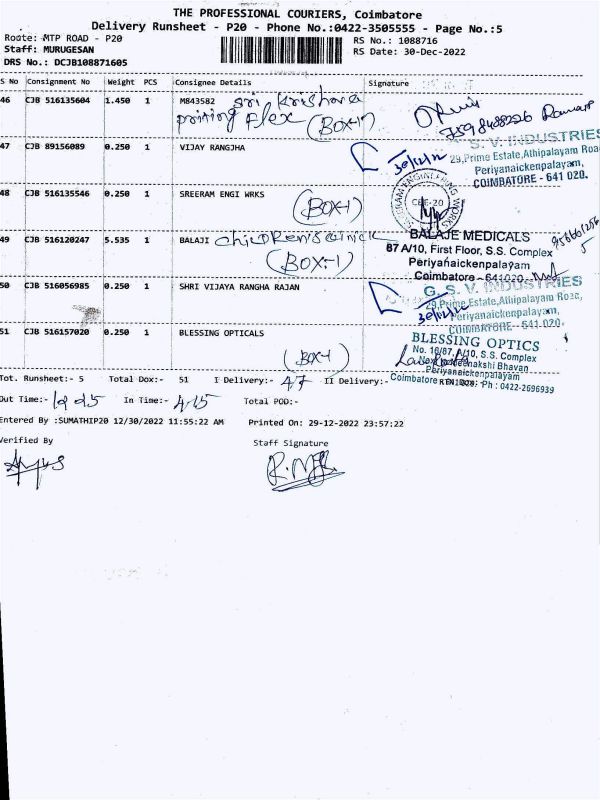 THE PROFESSIONAL COURIERS, Coimbatore
Delivery Runsheet - P20 - Phone No.:0422-3505555 - Page No.:5
Roote: MTP ROAD - P20
RS No.: 1088716
Staff: MURUGESAN
RS Date: 30-Dec-2022
DRS No.: DCJB108871605
S No Consignment No Weight PCS Consignee Details Signature
46 CJB 516135604 1.450 1 M843582 Sri Krishna
printing flex (BOX-1)
47 CJB 89156089 0.250 1 VIJAY RANGJHA
30/12/22
S. V. INDUSTRIES
29,Prime Estate,Athipalayam Road
Periyanaickenpalayam,
COIMBATORE - 641 020.
48 CJB 516135546 0.250 1 SREERAM ENGI WRKS
(BOX-1)
CBE-20
49 CJB 516120247 5.535 1 BALAJI Children's clinick
(BOX:-1)
BALAJE MEDICALS
87 A/10, First Floor, S.S. Complex
Periyanaickenpalayam
Coimbatore - 641020.
50 CJB 516056985 0.250 1 SHRI VIJAYA RANGHA RAJAN
30/12/22
G. S. V. INDUSTRIES
29,Prime Estate,Athipalayam Road,
Periyanaickenpalayam,
COIMBATORE - 641 020.
51 CJB 516157020 0.250 1 BLESSING OPTICALS
(BOX-1)
BLESSING OPTICS
No. 16/87, A/10, S.S. Complex
Meenakshi Bhavan
Periyanaickenpalayam
Coimbatore Ph : 0422-2696939
Tot. Runsheet:- 5 Total Dox:- 51 I Delivery:- 47 II Delivery:- RTN DOX:-
Out Time:- In Time:- 4-15 Total POD:-
Entered By :SUMATHIP20 12/30/2022 11:55:22 AM Printed On: 29-12-2022 23:57:22
Verified By Staff Signature